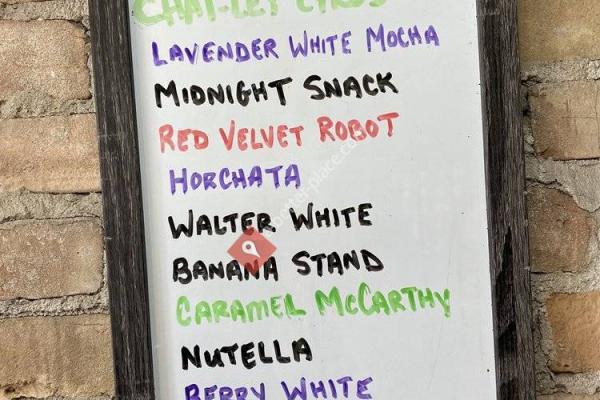 CHAI-LEY CYRUS
LAVENDER WHITE MOCHA
MIDNIGHT SNACK
RED VELVET ROBOT
HORCHATA
WALTER WHITE
BANANA STAND
CARAMEL McCARTHY
NUTELLA
BERRY WHITE